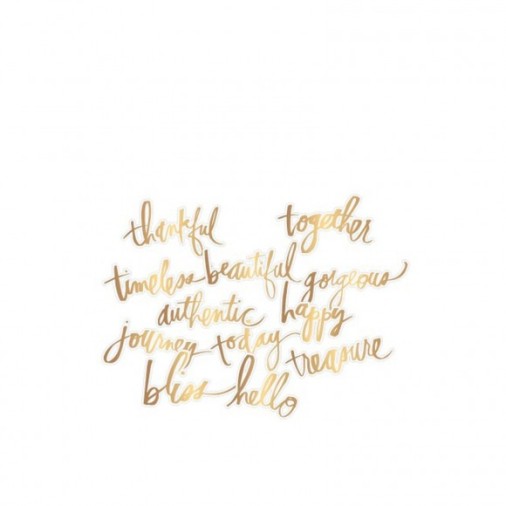 thankful together
timeless beautiful gorgeous
authentic happy
journey today treasure
bliss hello